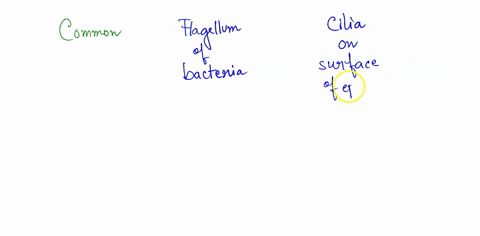 Common
Flagellum
of
bacteria
Cilia
on
surface
of